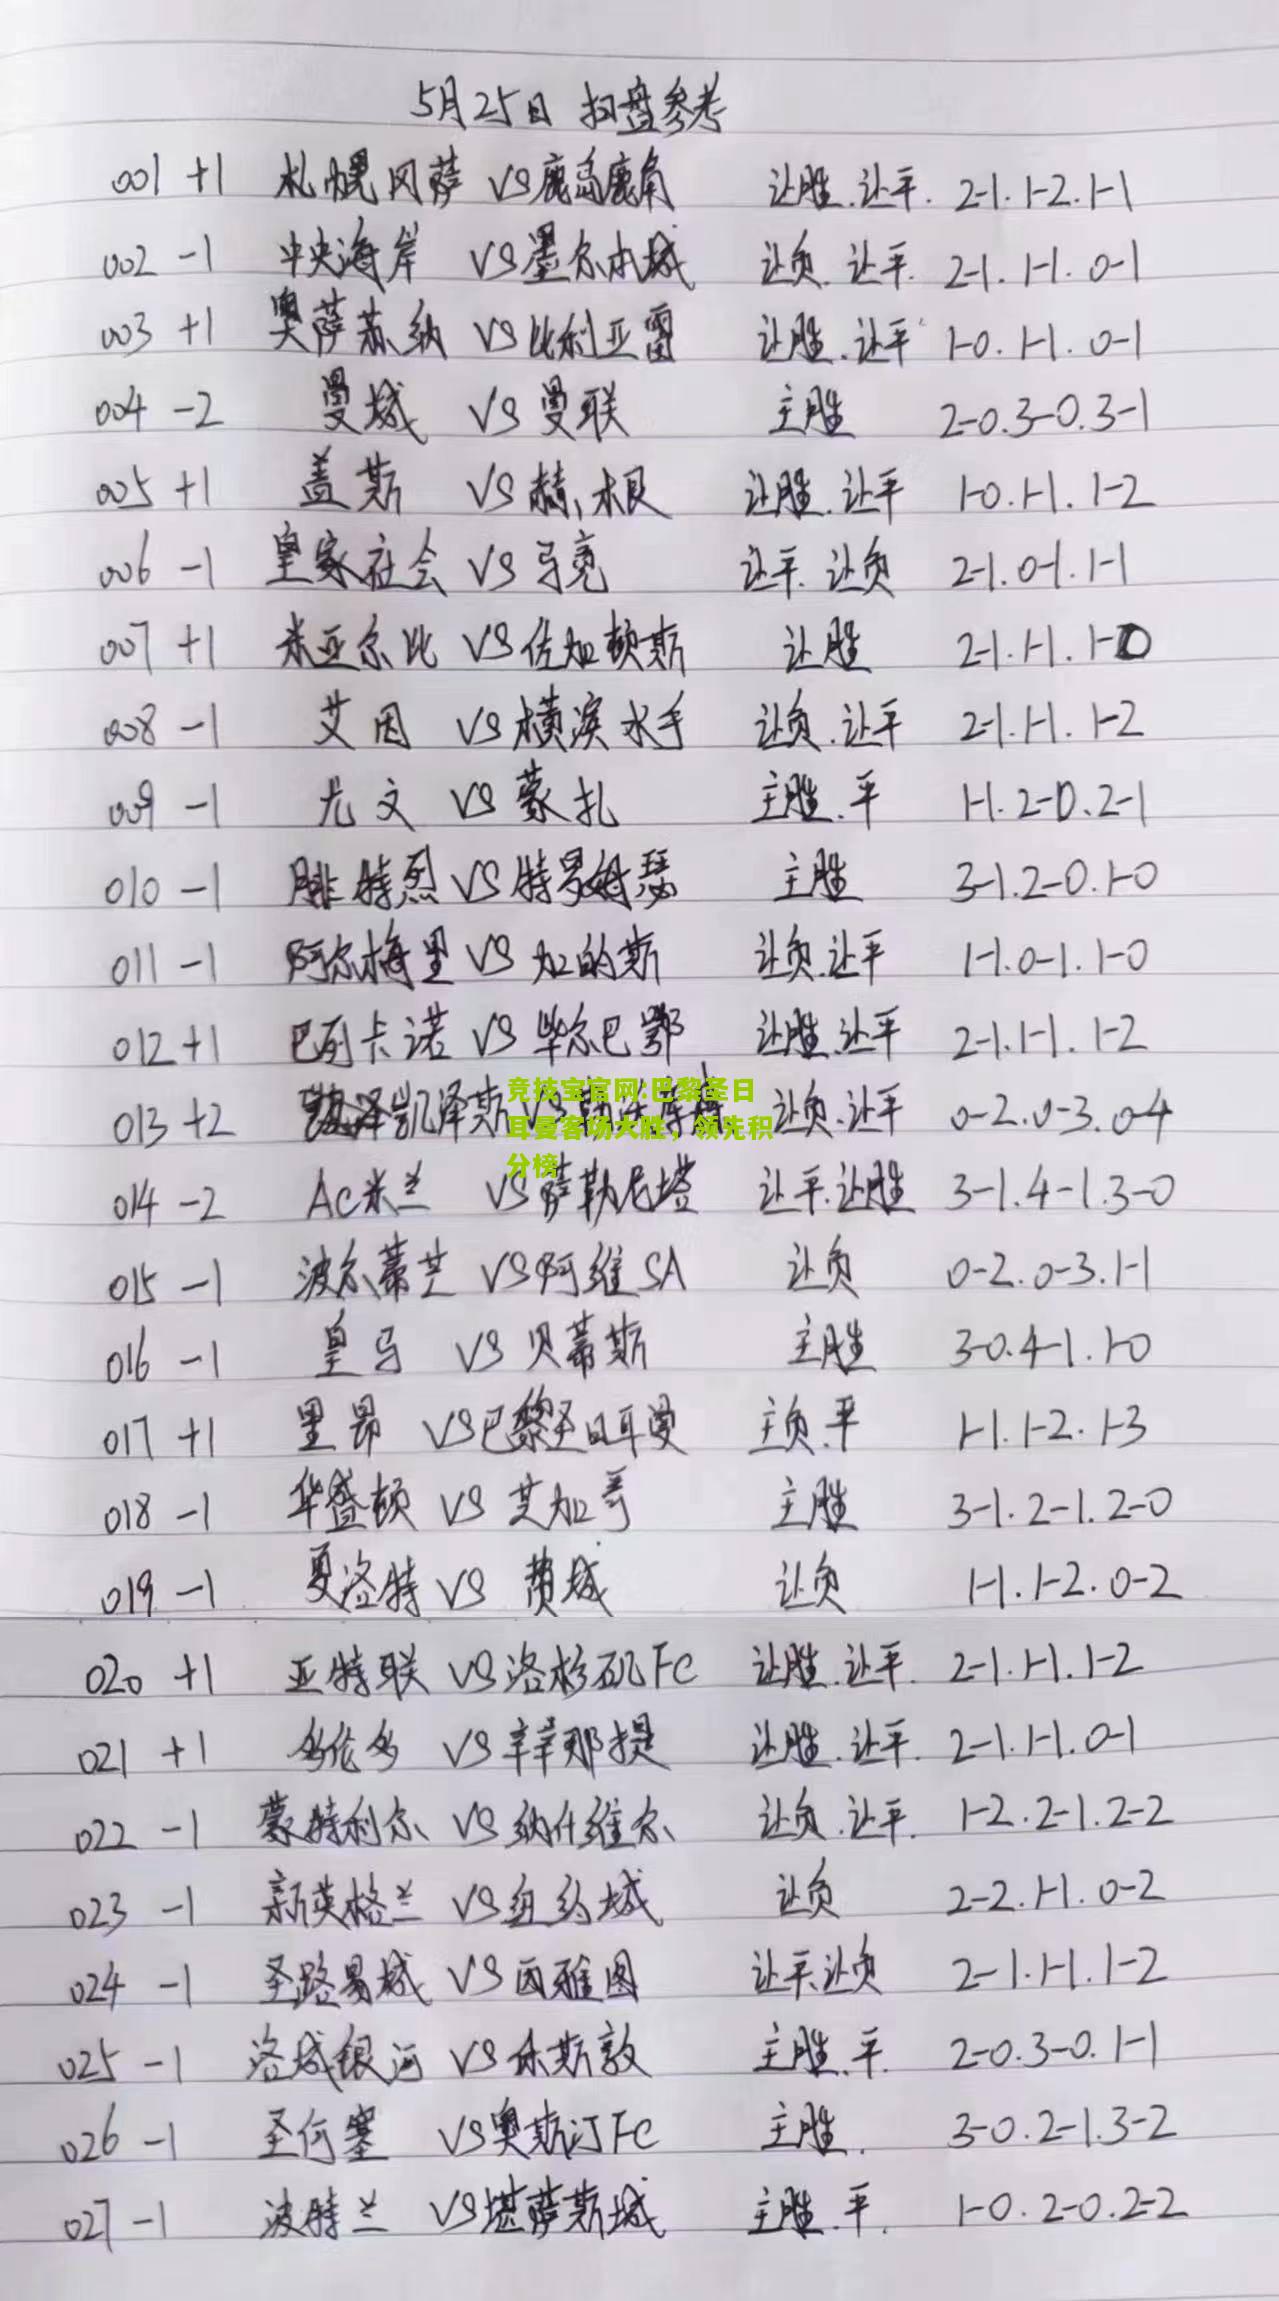 5月25日 扫盘参考
001 +1 札幌冈萨 VS 鹿岛鹿角 让胜.让平. 2-1.1-2.1-1
002 -1 中央海岸 VS 墨尔本城 让负.让平. 2-1.1-1.0-1
003 +1 奥萨苏纳 VS 比利亚雷 让胜.让平 1-0.1-1.0-1
004 -2 曼城 VS 曼联 主胜 2-0.3-0.3-1
005 +1 盖斯 VS 赫根 让胜.让平 1-0.1-1.1-2
006 -1 皇家社会 VS 马竞 让平.让负 2-1.0-1.1-1
007 +1 米亚尔比 VS 佐加顿斯 让胜 2-1.1-1.1-0
008 -1 艾因 VS 横滨水手 让负.让平 2-1.1-1.1-2
009 -1 尤文 VS 蒙扎 主胜.平 1-1.2-0.2-1
010 -1 腓特烈 VS 特罗姆瑟 主胜 3-1.2-0.1-0
011 -1 阿尔梅里 VS 加的斯 让负.让平 1-1.0-1.1-0
012 +1 巴列卡诺 VS 毕尔巴鄂 让胜.让平 2-1.1-1.1-2
竞技宝官网:巴黎圣日
013 +2 凯泽斯 VS 让负.让平 0-2.0-3.0-4
耳曼客场大胜，领先积
分榜
014 -2 AC米兰 VS 萨勒尼塔 让平.让胜 3-1.4-1.3-0
015 -1 波尔蒂芒 VS 阿维SA 让负 0-2.0-3.1-1
016 -1 皇马 VS 贝蒂斯 主胜 3-0.4-1.1-0
017 +1 里昂 VS 巴黎圣日耳曼 主负.平 1-1.1-2.1-3
018 -1 华盛顿 VS 芝加哥 主胜 3-1.2-1.2-0
019 -1 夏洛特 VS 费城 让负 1-1.1-2.0-2
020 +1 亚特联 VS 洛杉矶FC 让胜.让平. 2-1.1-1.1-2
021 +1 多伦多 VS 辛辛那提 让胜.让平. 2-1.1-1.0-1
022 -1 蒙特利尔 VS 纳什维尔 让负.让平. 1-2.2-1.2-2
023 -1 新英格兰 VS 纽约城 让负 2-2.1-1.0-2
024 -1 圣路易城 VS 西雅图 让平.让负 2-1.1-1.1-2
025 -1 洛城银河 VS 休斯敦 主胜.平. 2-0.3-0.1-1
026 -1 圣何塞 VS 奥斯汀FC 主胜. 3-0.2-1.3-2
027 -1 波特兰 VS 堪萨斯城 主胜.平. 1-0.2-0.2-2